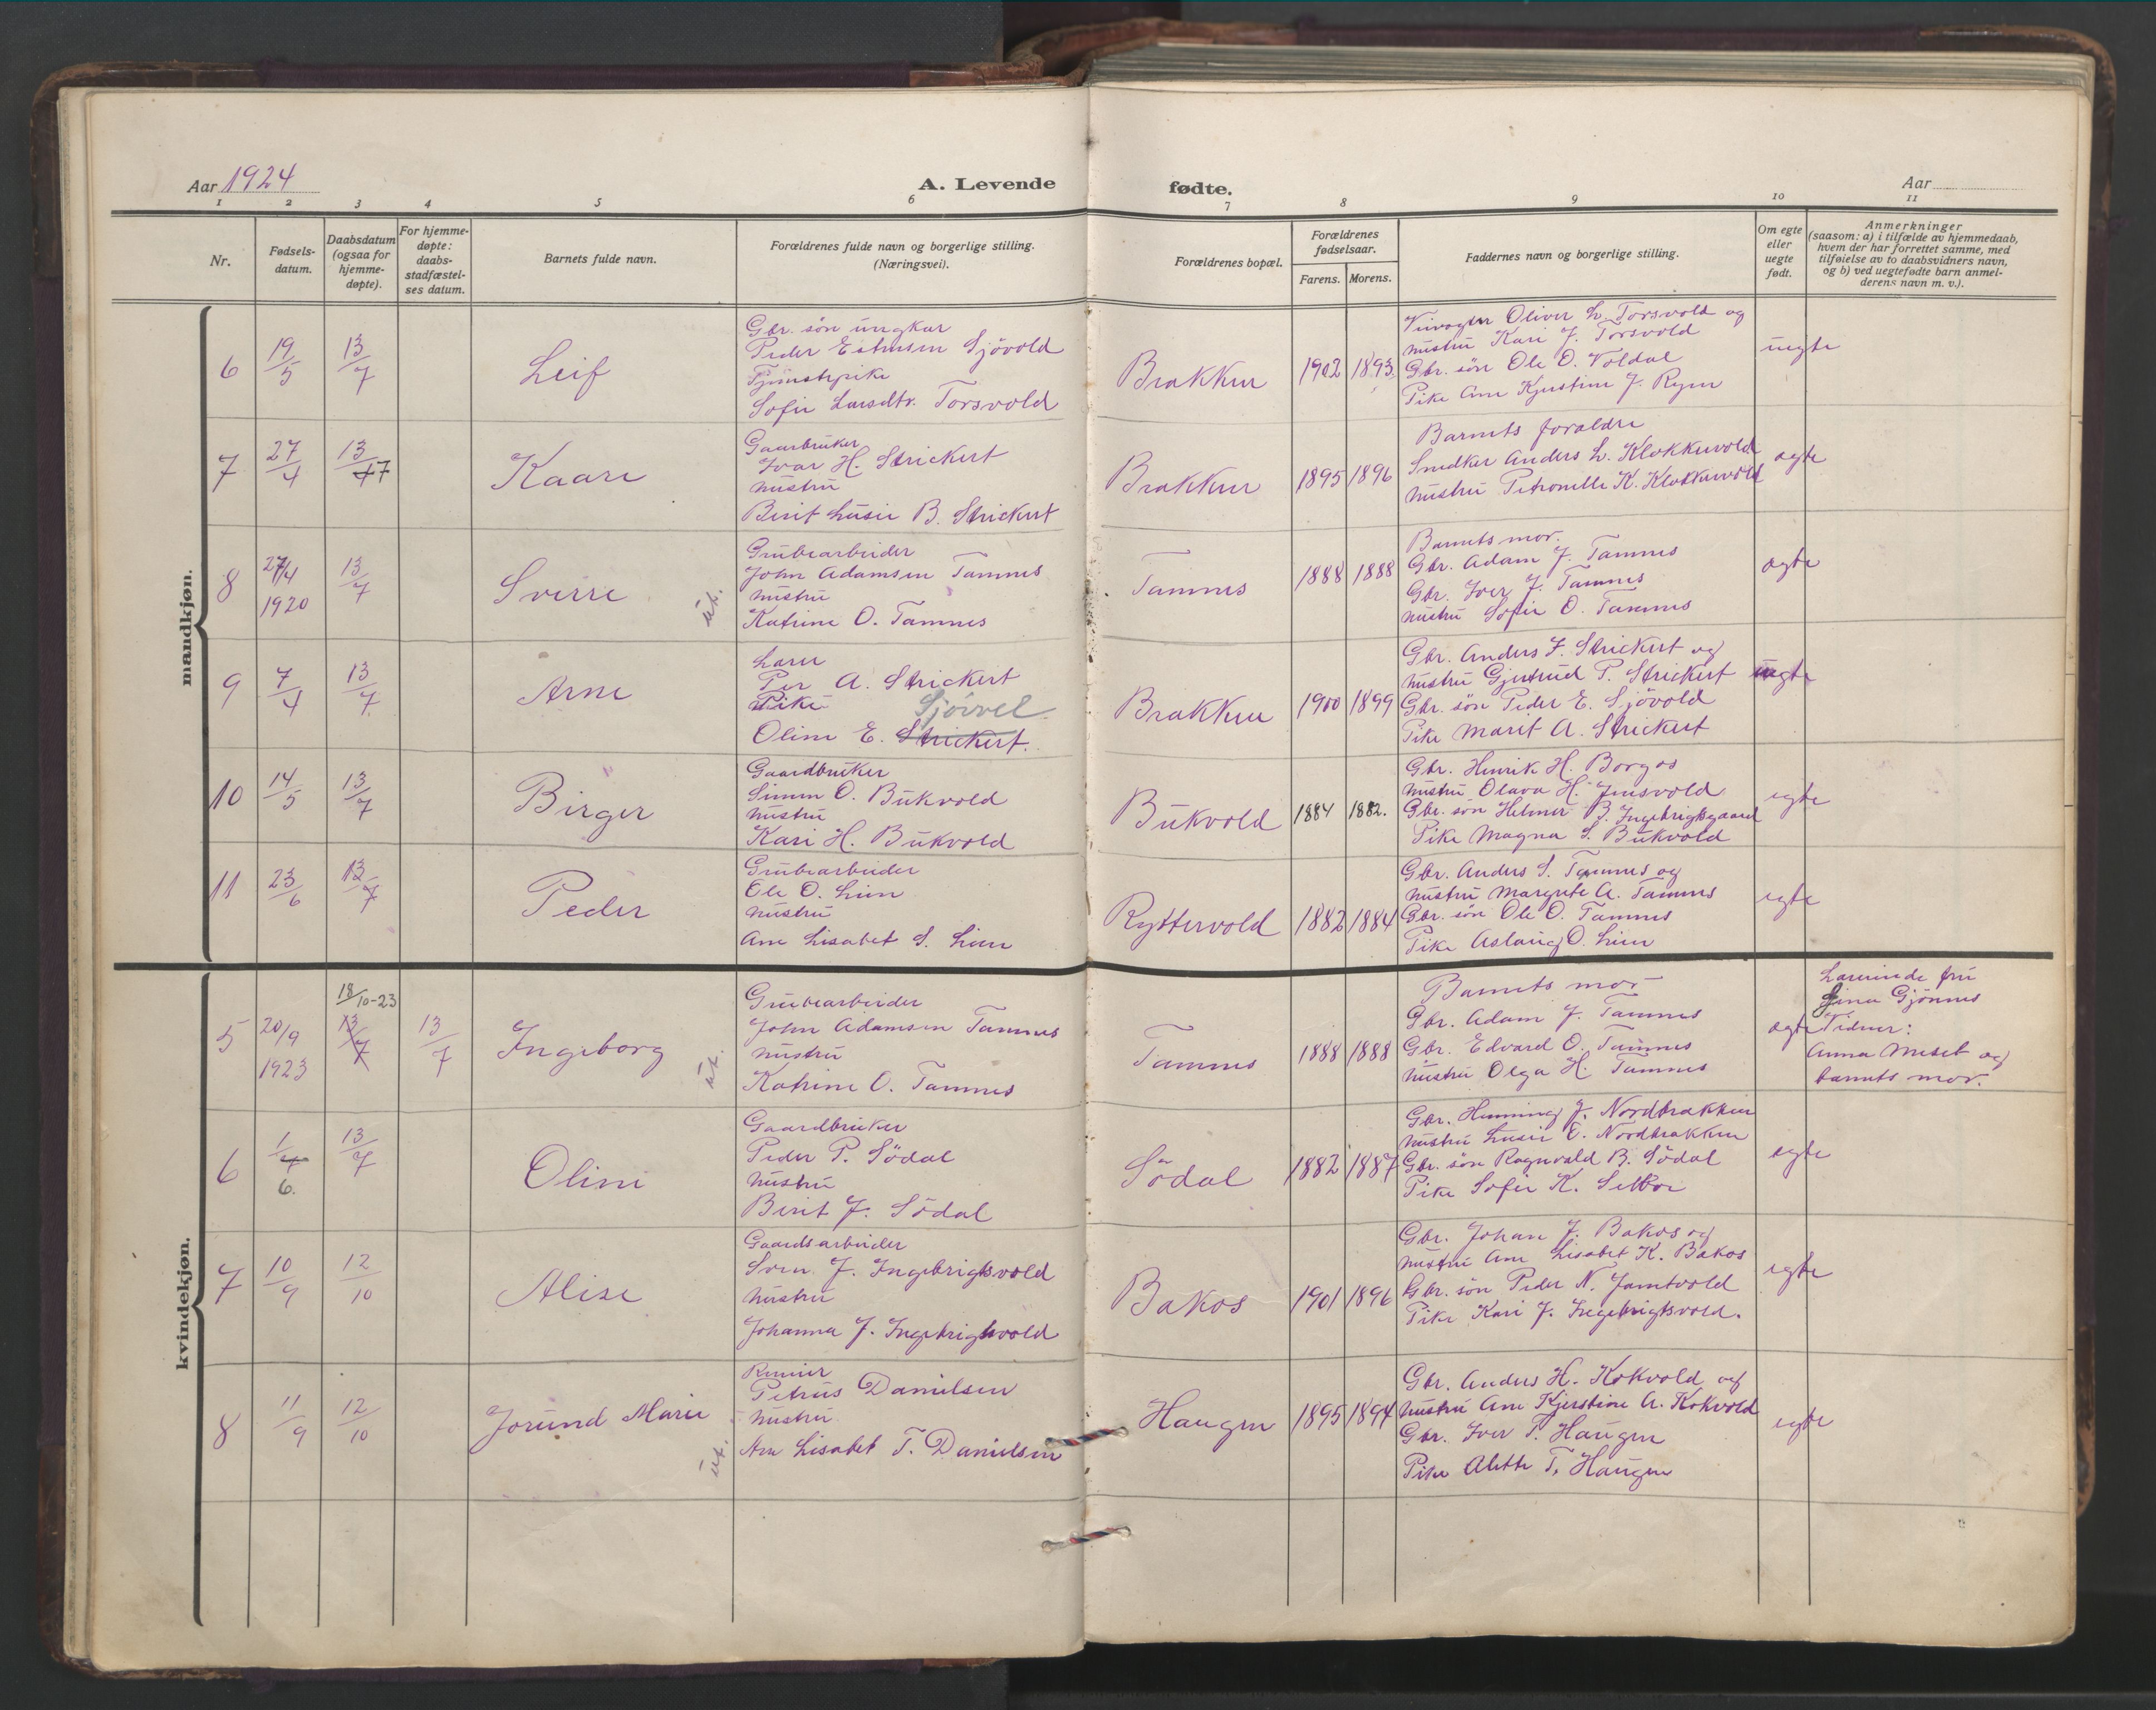 Aar 1924
A. Levende fødte.
Aar
1 2 3 4 5 6 7 8 9 10 11
Nr.
Fødsels-
datum.
Daabsdatum
(ogsaa for
hjemme-
døpte).
For hjemme-
døpte:
daabs-
stadfæstel-
ses datum.
Barnets fulde navn.
Forældrenes fulde navn og borgerlige stilling.
(Næringsvei).
Forældrenes bopæl.
Forældrenes
fødselsaar.
Farens. Morens.
Faddernes navn og borgerlige stilling.
Om egte
eller
uegte
født.
Anmerkninger
(saasom: a) i tilfælde av hjemmedaab,
hvem der har forrettet samme, med
tilføielse av to daabsvidners navn,
og b) ved uegtefødte barn anmel-
derens navn m. v.).
mandkjøn.
6 19/5 13/7 Leif
Gbr. søn ungkar
Peder Estensen Sjövold
Tjenstepike
Sofie Larsdtr. Torsvold
Brækken 1902 1893
Veivogter Oliver L. Torsvold og
hustru Kari J. Torsvold
Gbr. søn Ole O. Voldal
Pike Ane Kjerstine J. Ryen
uegte
7 27/4 13/7 Kaare
Gaarbruker
Ivar H. Strickert
hustru
Berit Lusie B. Strickert
Brækken 1895 1896
Barnets forældre
Snedker Anders L. Klokkervold
hustru Petronelle K. Klokkervold
egte
8 27/4 1920 13/7 Sverre
ut.
Grubearbeider
John Adamsen Tamnes
hustru
Katrine O. Tamnes
Tamnes 1888 1888
Barnets mor.
Gbr. Adam J. Tamnes
Gbr. Iver J. Tamnes
hustru Sofie O. Tamnes
egte
9 7/4 13/7 Arne
Lærer
Per A. Strickert
Pike Sjövel
Oline E. Strickert.
Brækken 1900 1899
Gbr. Anders F. Strickert og
hustru Gjertrud P. Strickert
Gbr. søn Peder E. Sjövold
Pike Marit A. Strickert
uegte
10 14/5 13/7 Birger
Gaardbruker
Simen O. Bukvold
hustru
Kari H. Bukvold
Bukvold 1884 1882.
Gbr. Henrik H. Borgos
hustru Olava H. Jensvold
Gbr. søn Helmer B. Ingebrigtsgaard
Pike Magna S. Bukvold
egte
11 23/6 13/7 Peder
Grubearbeider
Ole O. Lien
hustru
Ane Lisabet S. Lien
Ryttervold 1882 1884
Gbr. Anders S. Tamnes og
hustru Margrete A. Tamnes
Gbr. søn Ole O. Tamnes
Pike Aslaug O. Lien
egte
kvindekjøn.
5 20/9 1923 18/10-23 13/7 13/7 Ingeborg
ut.
Grubearbeider
John Adamsen Tamnes
hustru
Katrine O. Tamnes
Tamnes 1888 1888
Barnets mor
Gbr. Adam J. Tamnes
Gbr. Edvard O. Tamnes
hustru Olga H. Tamnes
egte
Lærerinde fru
Sina Gjönnes
Vidner:
Anna Meset og
barnets mor.
6 1/6. 13/7 Oline
Gaardbruker
Peder P. Södal
hustru
Berit J. Södal
Södal 1882 1887
Gbr. Henning J. Nordbrækken
hustru Lusie E. Nordbrækken
Gbr. søn Ragnvald B. Södal
Pike Sofie K. Selboe
egte
7 10/9 12/10 Alise
Gaardsarbeider
Sven J. Ingebrigtsvold
hustru
Johanna J. Ingebrigtsvold
Bakos 1901 1896
Gbr. Johan J. Bakos og
hustru Ane Lisabet K. Bakos
Gbr. søn Peder N. Jamtvold
Pike Kari J. Ingebrigtsvold.
egte
8 11/9 12/10 Jorund Marie
ut.
Petrus Danielsen
hustru
Ane Lisabet T. Danielsen
Haugen 1895 1894
Gbr. Anders H. Kokvold og
hustru Ane Kjerstine A. Kokvold
Gbr. Iver T. Haugen
Pike Alette T. Haugen
egte